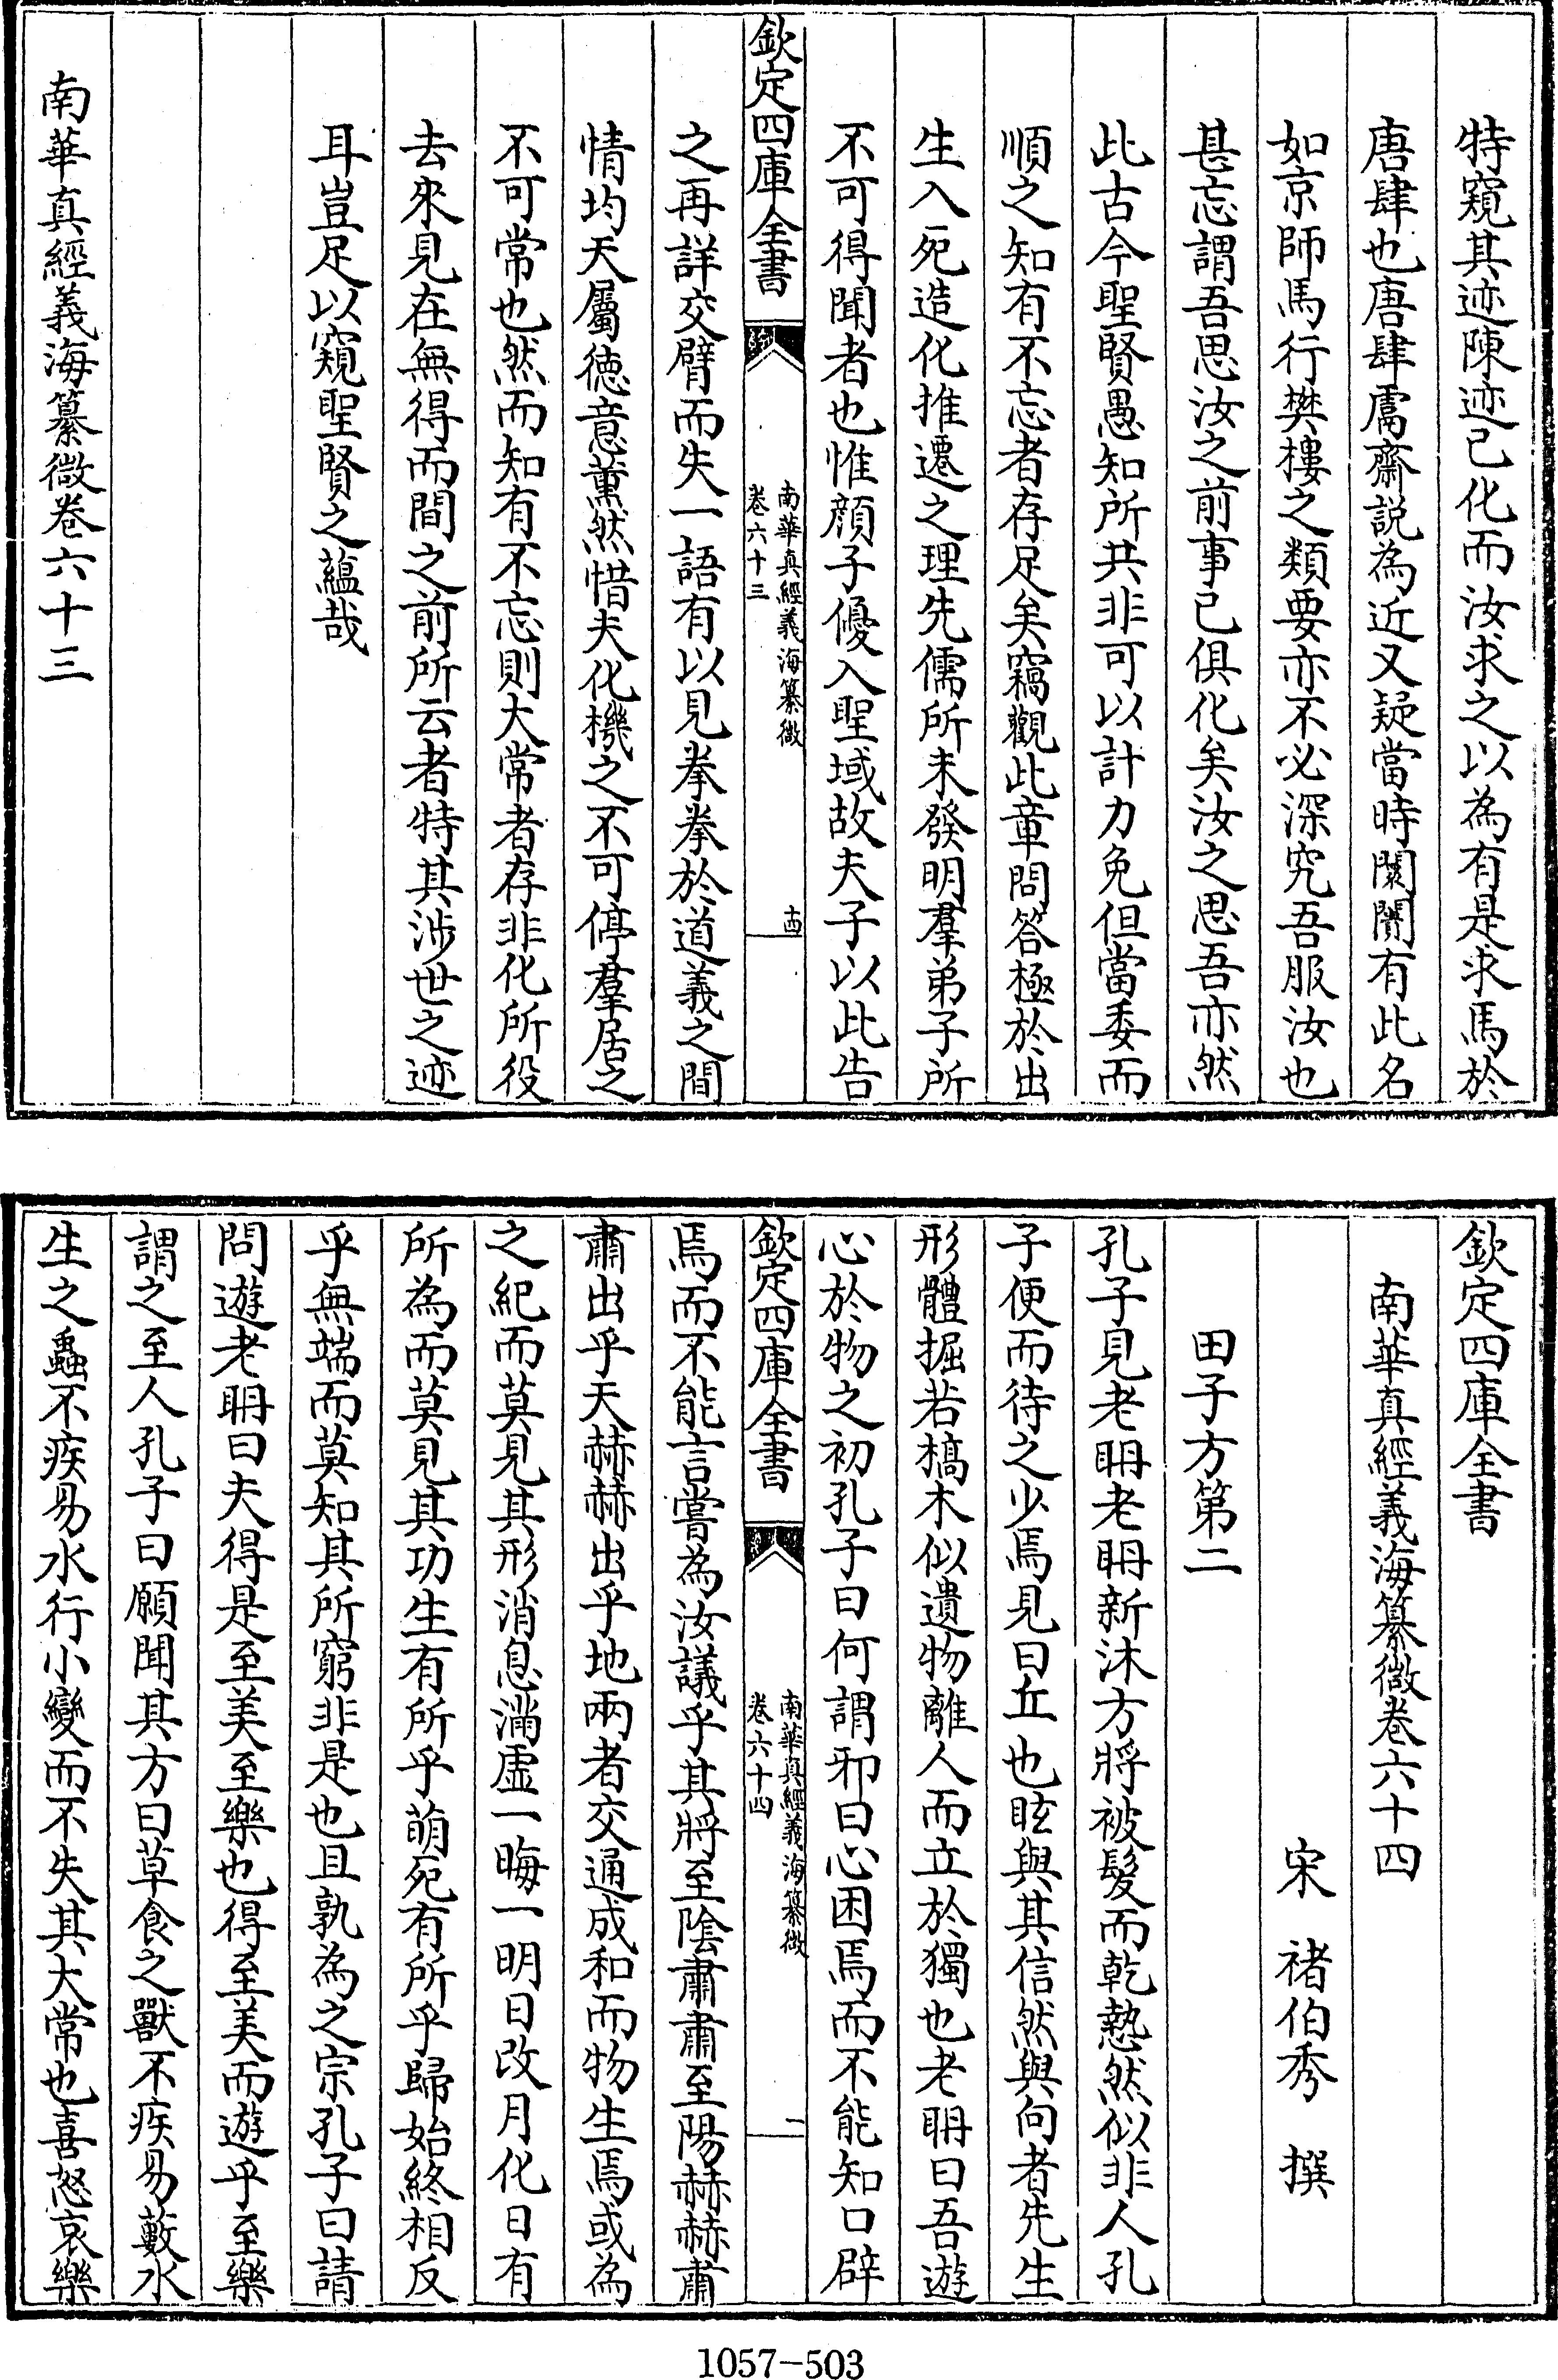 特窺其迹陳迹已化而汝求之以為有是求馬於
唐肆也唐肆鬳齋説為近又疑當時闤闠有此名
如京師馬行樊樓之類要亦不必深究吾服汝也
甚忘謂吾思汝之前事已俱化矣汝之思吾亦然
此古今聖賢愚知所共非可以計力免但當委而
順之知有不忘者存足矣竊觀此章問答極於出
生入死造化推遷之理先儒所未發明羣弟子所
不可得聞者也惟顔子優入聖域故夫子以此告
欽定四庫全書
南華真經義海纂微
卷六十三
十四
之再詳交臂而失一語有以見拳拳於道義之間
情均天屬徳意薰然惜夫化機之不可停羣居之
不可常也然而知有不忘則大常者存非化所役
去來見在無得而間之前所云者特其涉世之迹
耳豈足以窺聖賢之蘊哉
南華真經義海纂微卷六十三
欽定四庫全書
南華真經義海纂微卷六十四
宋 褚伯秀 撰
田子方第二
孔子見老耼老耼新沐方將被髮而乾慹然似非人孔
子便而待之少焉見曰丘也眩與其信然與向者先生
形體掘若槁木似遺物離人而立於獨也老耼曰吾遊
心於物之初孔子曰何謂邪曰心困焉而不能知口辟
欽定四庫全書
南華真經義海纂微
卷六十四
一
焉而不能言嘗為汝議乎其將至陰肅肅至陽赫赫肅
肅出乎天赫赫出乎地兩者交通成和而物生焉或為
之紀而莫見其形消息滿虛一晦一明日改月化日有
所為而莫見其功生有所乎萌死有所乎歸始終相反
乎無端而莫知其所窮非是也且孰為之宗孔子曰請
問遊老耼曰夫得是至美至樂也得至美而遊乎至樂
謂之至人孔子曰願聞其方曰草食之獸不疾易藪水
生之蟲不疾易水行小變而不失其大常也喜怒哀樂
1057-503